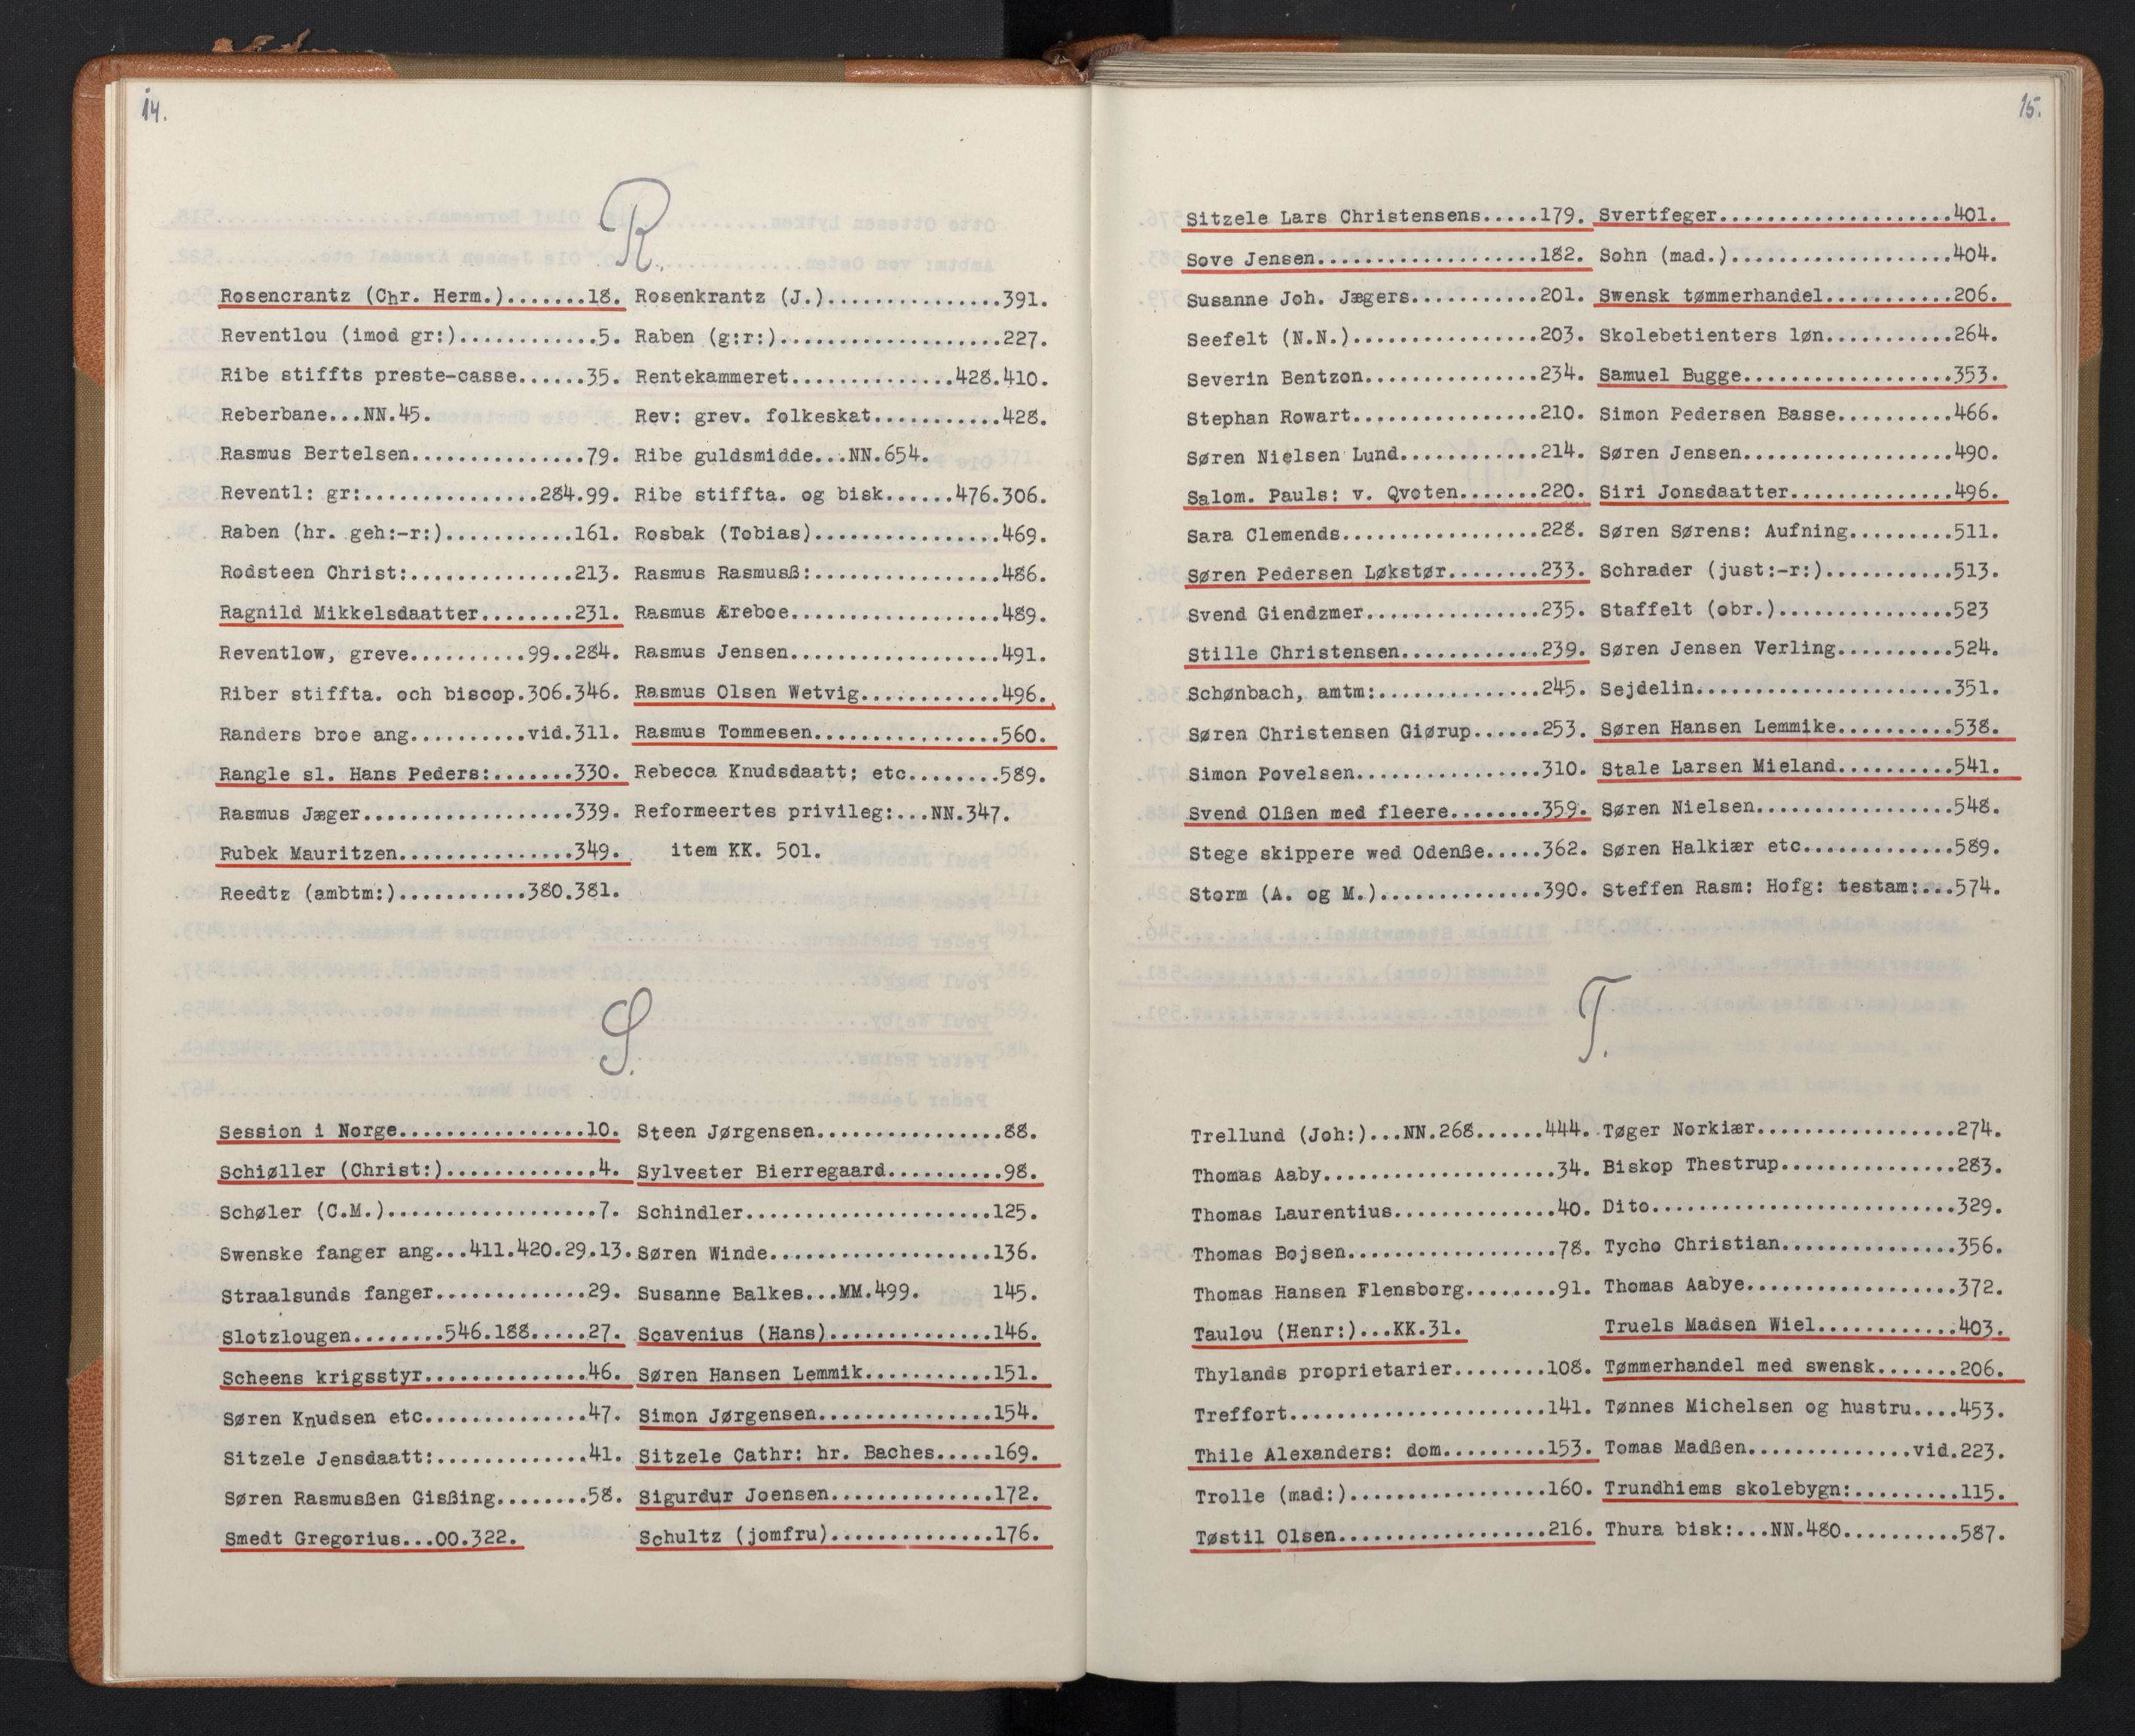 14.
R.
Rosencrantz (Chr. Herm.).......18.
Reventlou (imod gr:)............5.
Ribe stiffts preste-casse......35.
Reberbane...NN.45.
Rasmus Bertelsen...............79.
Reventl: gr:...............284.99.
Raben (hr. geh:-r:)...........161.
Rodsteen Christ:..............213.
Ragnild Mikkelsdaatter........231.
Reventlow, greve..........99..284.
Riber stiffta. och biscop.306.346.
Randers broe ang..........vid.311.
Rangle sl. Hans Peders:.......330.
Rasmus Jæger..................339.
Rubek Mauritzen...............349.
Reedtz (ambtm:)...........380.381.
Rosenkrantz (J.)...............391.
Raben (g:r:)...................227.
Rentekammeret..............428.410.
Rev: grev. folkeskat...........428.
Ribe guldsmidde...NN.654.
Ribe stiffta. og bisk......476.306.
Rosbak (Tobias)................469.
Rasmus Rasmusß:................486.
Rasmus Æreboe..................489.
Rasmus Jensen..................491.
Rasmus Olsen Wetvig............496.
Rasmus Tommesen................560.
Rebecca Knudsdaatt; etc........589.
Reformeertes privileg:...NN.347.
item KK. 501.
S.
Session i Norge................10.
Schiøller (Christ:).............4.
Schøler (C.M.)..................7.
Swenske fanger ang...411.420.29.13.
Straalsunds fanger.............29.
Slotzlougen........546.188.....27.
Scheens krigsstyr..............46.
Søren Knudsen etc..............47.
Sitzele Jensdaatt:.............41.
Søren Rasmusßen Gisßing........58.
Smedt Gregorius...OO.322.
Steen Jørgensen................88.
Sylvester Bierregaard..........98.
Schindler.....................125.
Søren Winde...................136.
Susanne Balkes...MM.499. 145.
Scavenius (Hans)..............146.
Søren Hansen Lemmik...........151.
Simon Jørgensen...............154.
Sitzele Cathr: hr. Baches.....169.
Sigurdur Joensen..............172.
Schultz (jomfru)..............176.
15.
Sitzele Lars Christensens.....179.
Sove Jensen...................182.
Susanne Joh. Jægers...........201.
Seefelt (N.N.)................203.
Severin Bentzon...............234.
Stephan Rowart................210.
Søren Nielsen Lund............214.
Salom. Pauls: v. Qvoten.......220.
Sara Clemends.................228.
Søren Pedersen Løkstør........233.
Svend Giendzmer...............235.
Stille Christensen............239.
Schønbach, amtm:..............245.
Søren Christensen Giørup......253.
Simon Povelsen................310.
Svend Olßen med fleere........359.
Stege skippere wed Odenße.....362.
Storm (A. og M.)..............390.
Svertfeger....................401.
Sohn (mad.)...................404.
Swensk tømmerhandel...........206.
Skolebetienters løn...........264.
Samuel Bugge..................353.
Simon Pedersen Basse..........466.
Søren Jensen..................490.
Siri Jonsdaatter..............496.
Søren Sørens: Aufning.........511.
Schrader (just:-r:)...........513.
Staffelt (obr.)...............523
Søren Jensen Verling..........524.
Sejdelin......................351.
Søren Hansen Lemmike..........538.
Stale Larsen Mieland..........541.
Søren Nielsen.................548.
Søren Halkiær etc.............589.
Steffen Rasm: Hofg: testam:...574.
T.
Trellund (Joh:)...NN.268......444.
Thomas Aaby....................34.
Thomas Laurentius..............40.
Thomas Bojsen..................78.
Thomas Hansen Flensborg........91.
Taulou (Henr:)...KK.31.
Thylands proprietarier........108.
Treffort......................141.
Thile Alexanders: dom.........153.
Trolle (mad:).................160.
Tøstil Olsen..................216.
Tøger Norkiær.................274.
Biskop Thestrup...............283.
Dito..........................329.
Tycho Christian...............356.
Thomas Aabye..................372.
Truels Madsen Wiel............403.
Tømmerhandel med swensk.......206.
Tønnes Michelsen og hustru....453.
Tomas Madßen..............vid.223.
Trundhiems skolebygn:.........115.
Thura bisk:...NN.480..........587.